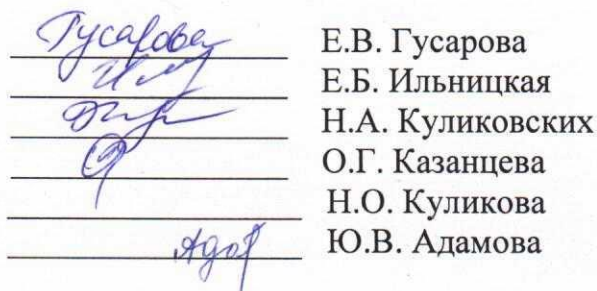 Гусарова Е.В. Гусарова
Е.Б. Ильницкая
Н.А. Куликовских
О.Г. Казанцева
Н.О. Куликова
Ю.В. Адамова